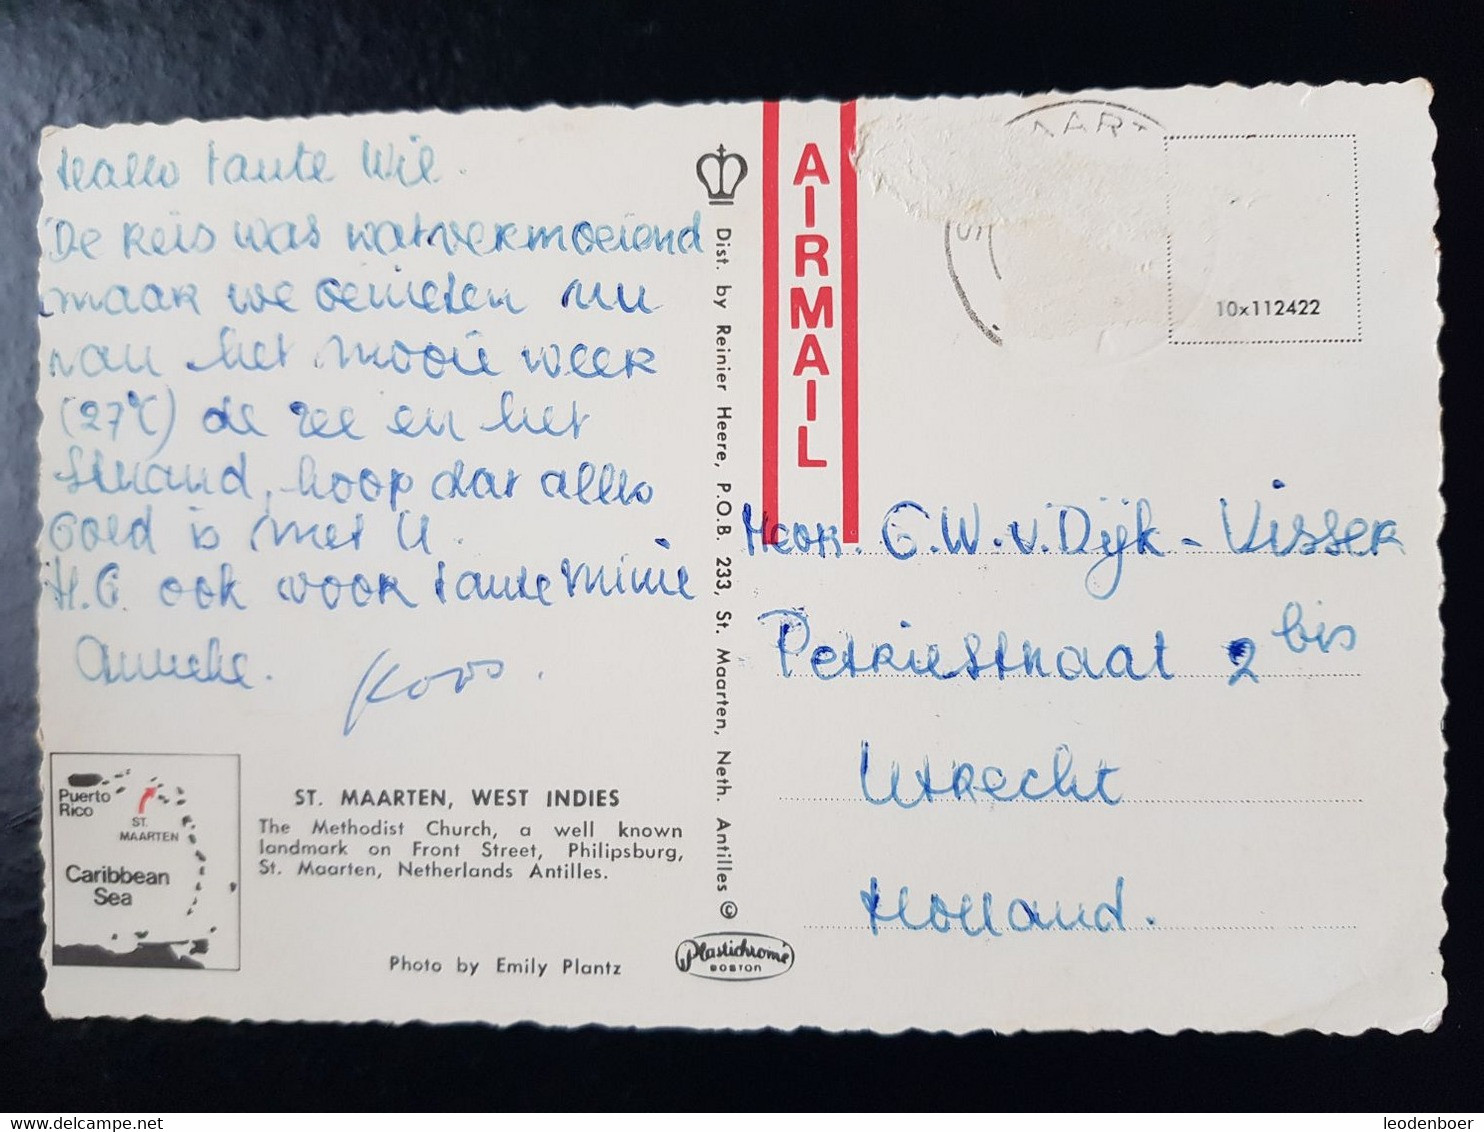 Hallo tante Wil.
De reis was wat vermoeiend
maar we genieten nu
van het mooie weer
(27°C) de zee en het
strand, hoop dat alles
goed is met U.
H.G. ook voor tante Mimie
Anneke. Koos.
Puerto
Rico
ST.
MAARTEN
Caribbean
Sea
ST. MAARTEN, WEST INDIES
The Methodist Church, a well known
landmark on Front Street, Philipsburg,
St. Maarten, Netherlands Antilles.
Photo by Emily Plantz
Dist. by Reinier Heere, P.O.B. 233, St. Maarten, Neth. Antilles ©
Plastichrome
BOSTON
AIRMAIL
10x112422
G.W. v. Dijk - Visser
Petriestraat 2 bis
Utrecht
Holland.
www.delcampe.net
leodenboer